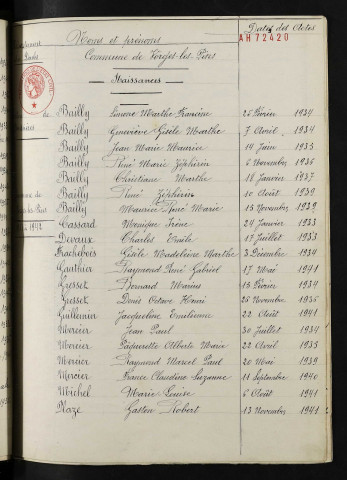 Noms et prénoms
Dates des Actes
AH72420
Commune de Forges-les-Bains
Naissances
Bailly Simone Marthe Francine 26 Février 1934
Bailly Geneviève Gisèle Marthe 7 Avril 1934
Bailly Jean Marie Maurice 14 Juin 1935
Bailly René Marie Zéphirin 6 Novembre 1936
Bailly Christiane Marthe 18 Janvier 1937
Bailly René Zéphirin 10 Août 1939
Bailly Maurice René Marie 15 Novembre 1939
Cassard Monique Irène 24 Janvier 1933
Devaux Charles Emile 17 Juillet 1933
Frachebois Gisèle Madeleine Marthe 3 Décembre 1934
Gauthier Raymond René Gabriel 17 Mai 1941
Grosset Bernard Marius 15 Février 1934
Grosset Denis Octave Henri 26 Novembre 1936
Guillemin Jacqueline Emilienne 22 Août 1941
Mercier Jean Paul 30 Juillet 1934
Mercier Paquerette Alberte Marie 22 Avril 1935
Mercier Raymond Marcel Paul 20 Mai 1939
Mercier France Claudine Suzanne 11 Septembre 1940
Michel Marie Louise 6 Août 1941
Plaze Gaston Robert 13 Novembre 1941